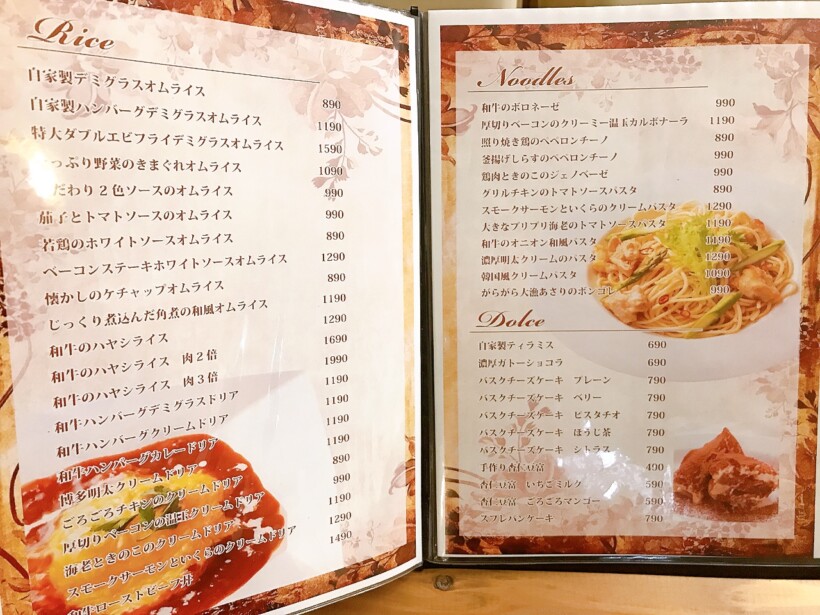 Rice
自家製デミグラスオムライス 890
自家製ハンバーグデミグラスオムライス 1190
特大ダブルエビフライデミグラスオムライス 1590
っぷり野菜のきまぐれオムライス 1090
だわり2色ソースのオムライス 990
茄子とトマトソースのオムライス 990
若鶏のホワイトソースオムライス 890
ベーコンステーキホワイトソースオムライス 1290
懐かしのケチャップオムライス 890
じっくり煮込んだ角煮の和風オムライス 1190
和牛のハヤシライス 1290
和牛のハヤシライス 肉2倍 1690
和牛のハヤシライス 肉3倍 1990
和牛ハンバーグデミグラスドリア 1190
和牛ハンバーグクリームドリア 1190
和牛ハンバーグカレードリア 1190
博多明太クリームドリア 890
ごろごろチキンのクリームドリア 990
厚切りベーコンの温玉クリームドリア 1190
海老ときのこのクリームドリア 1290
スモークサーモンといくらのクリームドリア 1490
和牛ローストビーフ丼
Noodles
和牛のボロネーゼ 990
厚切りベーコンのクリーミー温玉カルボナーラ 1190
照り焼き鶏のペペロンチーノ 890
釜揚げしらすのペペロンチーノ 990
鶏肉ときのこのジェノベーゼ 990
グリルチキンのトマトソースパスタ 890
スモークサーモンといくらのクリームパスタ 1290
大きなプリプリ海老のトマトソースパスタ 1190
和牛のオニオン和風パスタ 1190
濃厚明太クリームのパスタ 1290
韓国風クリームパスタ 1090
がらがら大漁あさりのボンゴレ 990
Dolce
自家製ティラミス 690
濃厚ガトーショコラ 690
バスクチーズケーキ プレーン 790
バスクチーズケーキ ベリー 790
バスクチーズケーキ ピスタチオ 790
バスクチーズケーキ ほうじ茶 790
バスクチーズケーキ シトラス 790
手作り杏仁豆富 490
杏仁豆富 いちごミルク 590
杏仁豆富 ごろごろマンゴー 590
スフレパンケーキ 790